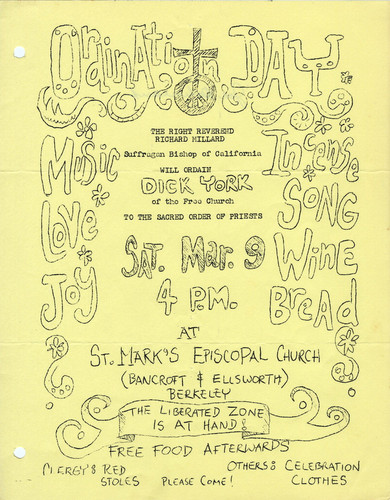 Ordination DAY
THE RIGHT REVEREND
RICHARD MILLARD
Suffragan Bishop of California
WILL ORDAIN
DICK YORK
of the Free Church
TO THE SACRED ORDER OF PRIESTS
Music
Love
Joy
Incense
SONG
Wine
Bread
SAT. Mar. 9
4 P.M.
AT
ST. MARK'S EPISCOPAL CHURCH
(BANCROFT & ELLSWORTH)
BERKELEY
THE LIBERATED ZONE
IS AT HAND!
FREE FOOD AFTERWARDS
CLERGY: RED
STOLES
PLEASE COME!
OTHERS: CELEBRATION
CLOTHES